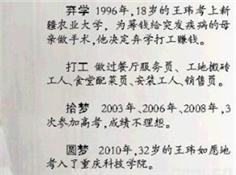 弃学 1996年,18岁的王玮考上新
疆农业大学，为筹钱给突发疾病的母
亲做手术,他决定弃学打工赚钱。
打工 做过餐厅服务员、工地搬砖
工人、食堂配菜员、安装工人、销售员。
拾梦 2003年、2006年、2008年,3
次参加高考,成绩不理想。
圆梦 2010年,32岁的王玮如愿地
考入了重庆科技学院。